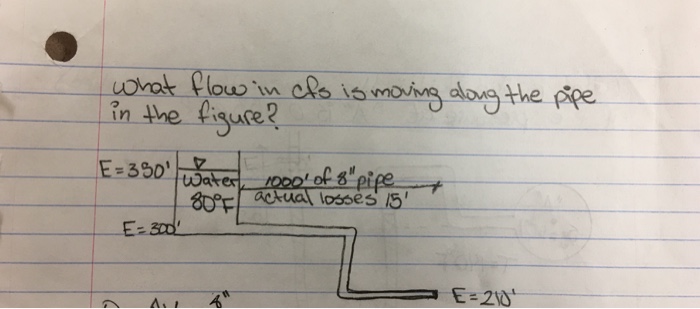 What flow in cfs is moving along the pipe
in the figure?
E=350'
Water
80°F
1000' of 8" pipe
actual losses 15'
E=300'
E=210'
8"